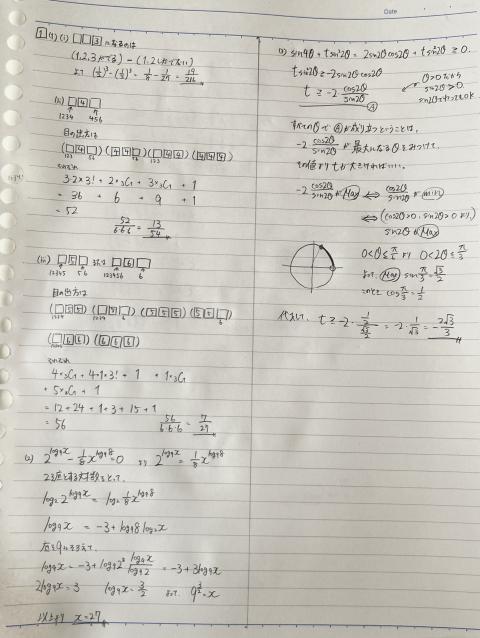 Date
1 (1) (i) □□3 になるのは
(1,2,3がでる) - (1,2しかでない)
より (1/2)³-(1/3)³ = 1/8 - 1/27 = 19/216
(ii) □4□
1234 456
目の出方は
(□4□) (44□) (□44) (444)
123 56 56 123
それぞれ
3·2×3! + 2×3C1 + 3×3C1 + 1
= 36 + 6 + 9 + 1
= 52
52/6·6·6 = 13/54
(iii) □5□ または □6□
12345 56 123456 6
目の出方は
(□55) (□56) (555) (55□)
1234 1234 6 6
(□66) (666)
それぞれ
4×3C1 + 4·1×3! + 1 + 1×3C1
+ 5×3C1 + 1
= 12+24+1+3+15+1
= 56
56/6·6·6 = 7/27
(2) 2^log9x - 1/8 x^log98 = 0 より 2^log9x = 1/8 x^log98
2を底とする対数をとって、
log2 2^log9x = log2 1/8 x^log98
log9x = -3 + log98 log2x
底を9にそろえて、
log9x = -3 + log92³ log9x/log92 = -3 + 3log9x
2log9x = 3 log9x = 3/2 よって 9^3/2 = x
以上より x = 27
(3) sin4θ + t sin²2θ = 2sin2θcos2θ + t sin²2θ ≥ 0.
t sin²2θ ≥ -2sin2θcos2θ
t ≥ -2 cos2θ/sin2θ
Ⓐ
θ>0だから
sin2θ>0.
sin2θでわってもOK
すべてのθでⒶが成り立つということは、
-2 cos2θ/sin2θ が最大になるθをみつけて、
その値よりtが大きければいい。
-2 cos2θ/sin2θ が Max ⇔ cos2θ/sin2θ が min
⇔ (cos2θ>0, sin2θ>0より)
sin2θが Max
0<θ≤π/6 より 0<2θ≤π/3
よって、Max sin π/3 = √3/2
このとき cos π/3 = 1/2
代入して、 t ≥ -2· 1/2/√3/2 = -2· 1/√3 = -2√3/3